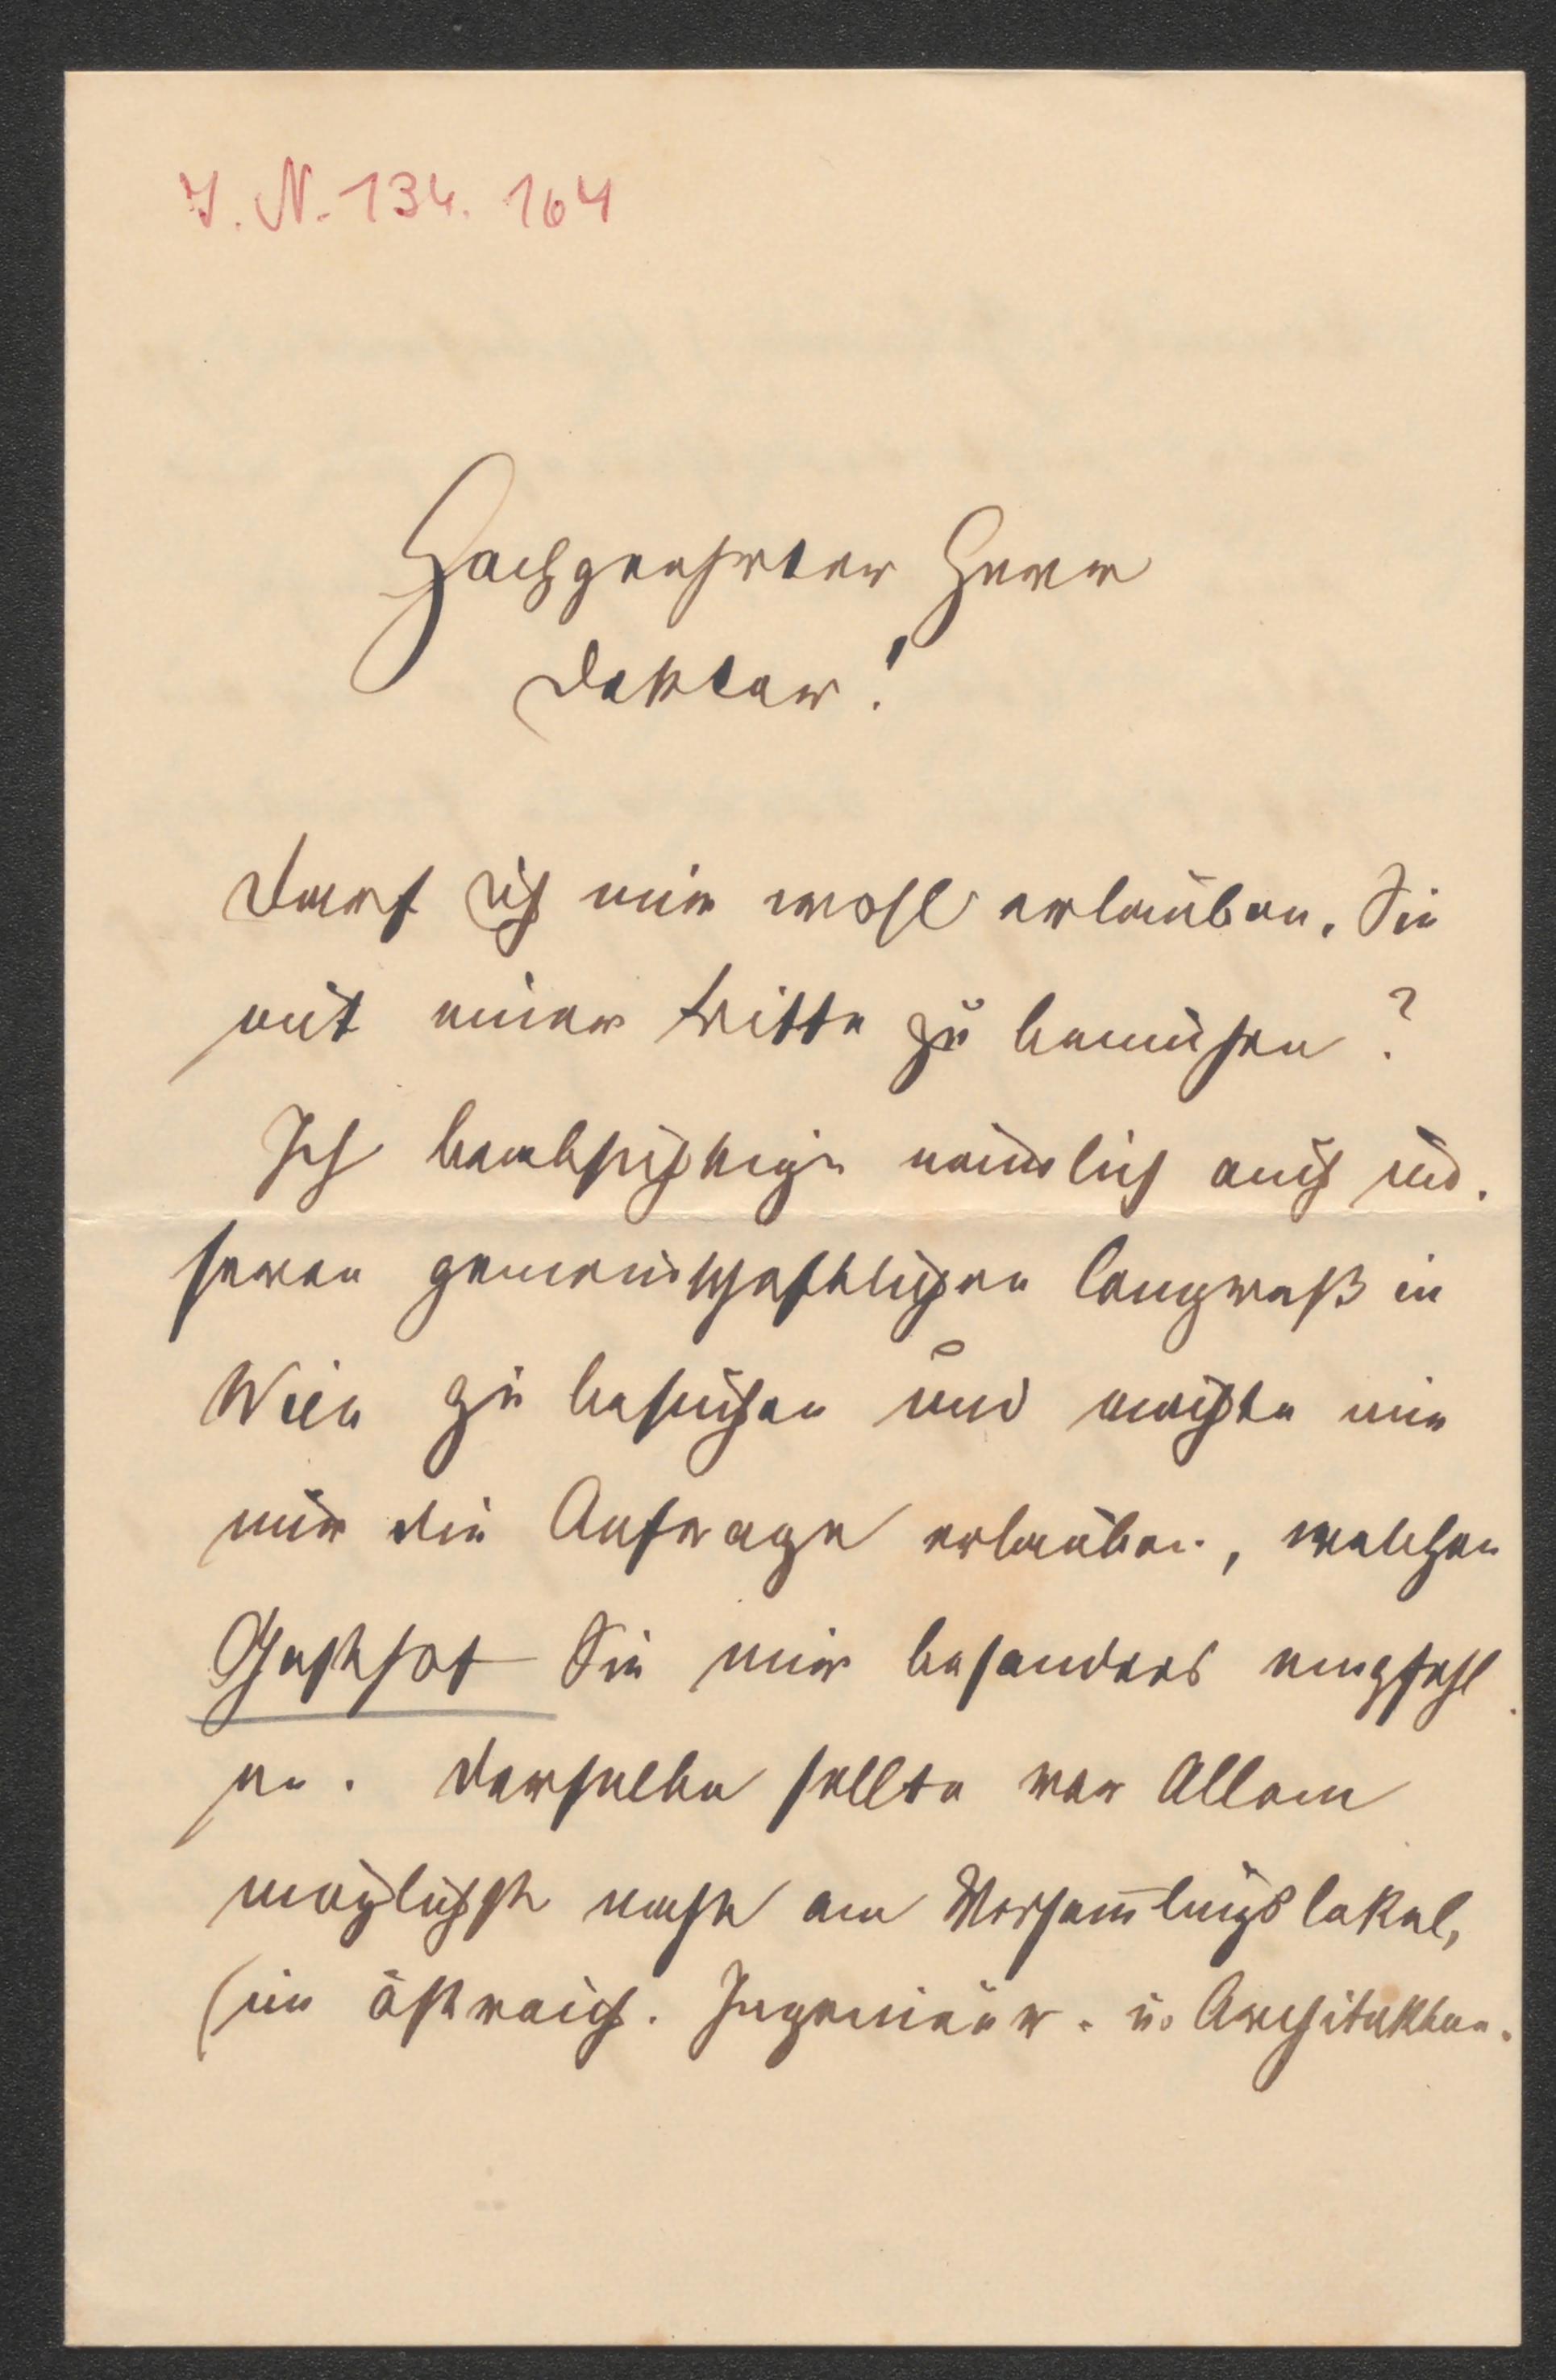 I. N. 134.164
Hochgeehrter Herr
Doktor!
Darf ich mir wohl erlauben, Sie
mit einer Bitte zu bemühen?
Ich beabsichtige nämlich auch un-
seren gemeinschaftlichen Congreß in
Wien zu besuchen und möchte mir
nur die Anfrage erlauben, welchen
Gasthof Sie mir besonders empfehl-
en. Derselbe sollte vor Allem
möglichst nahe am Versam̅lungslokal,
(im östreich. Ingenieur- u. Architekten-